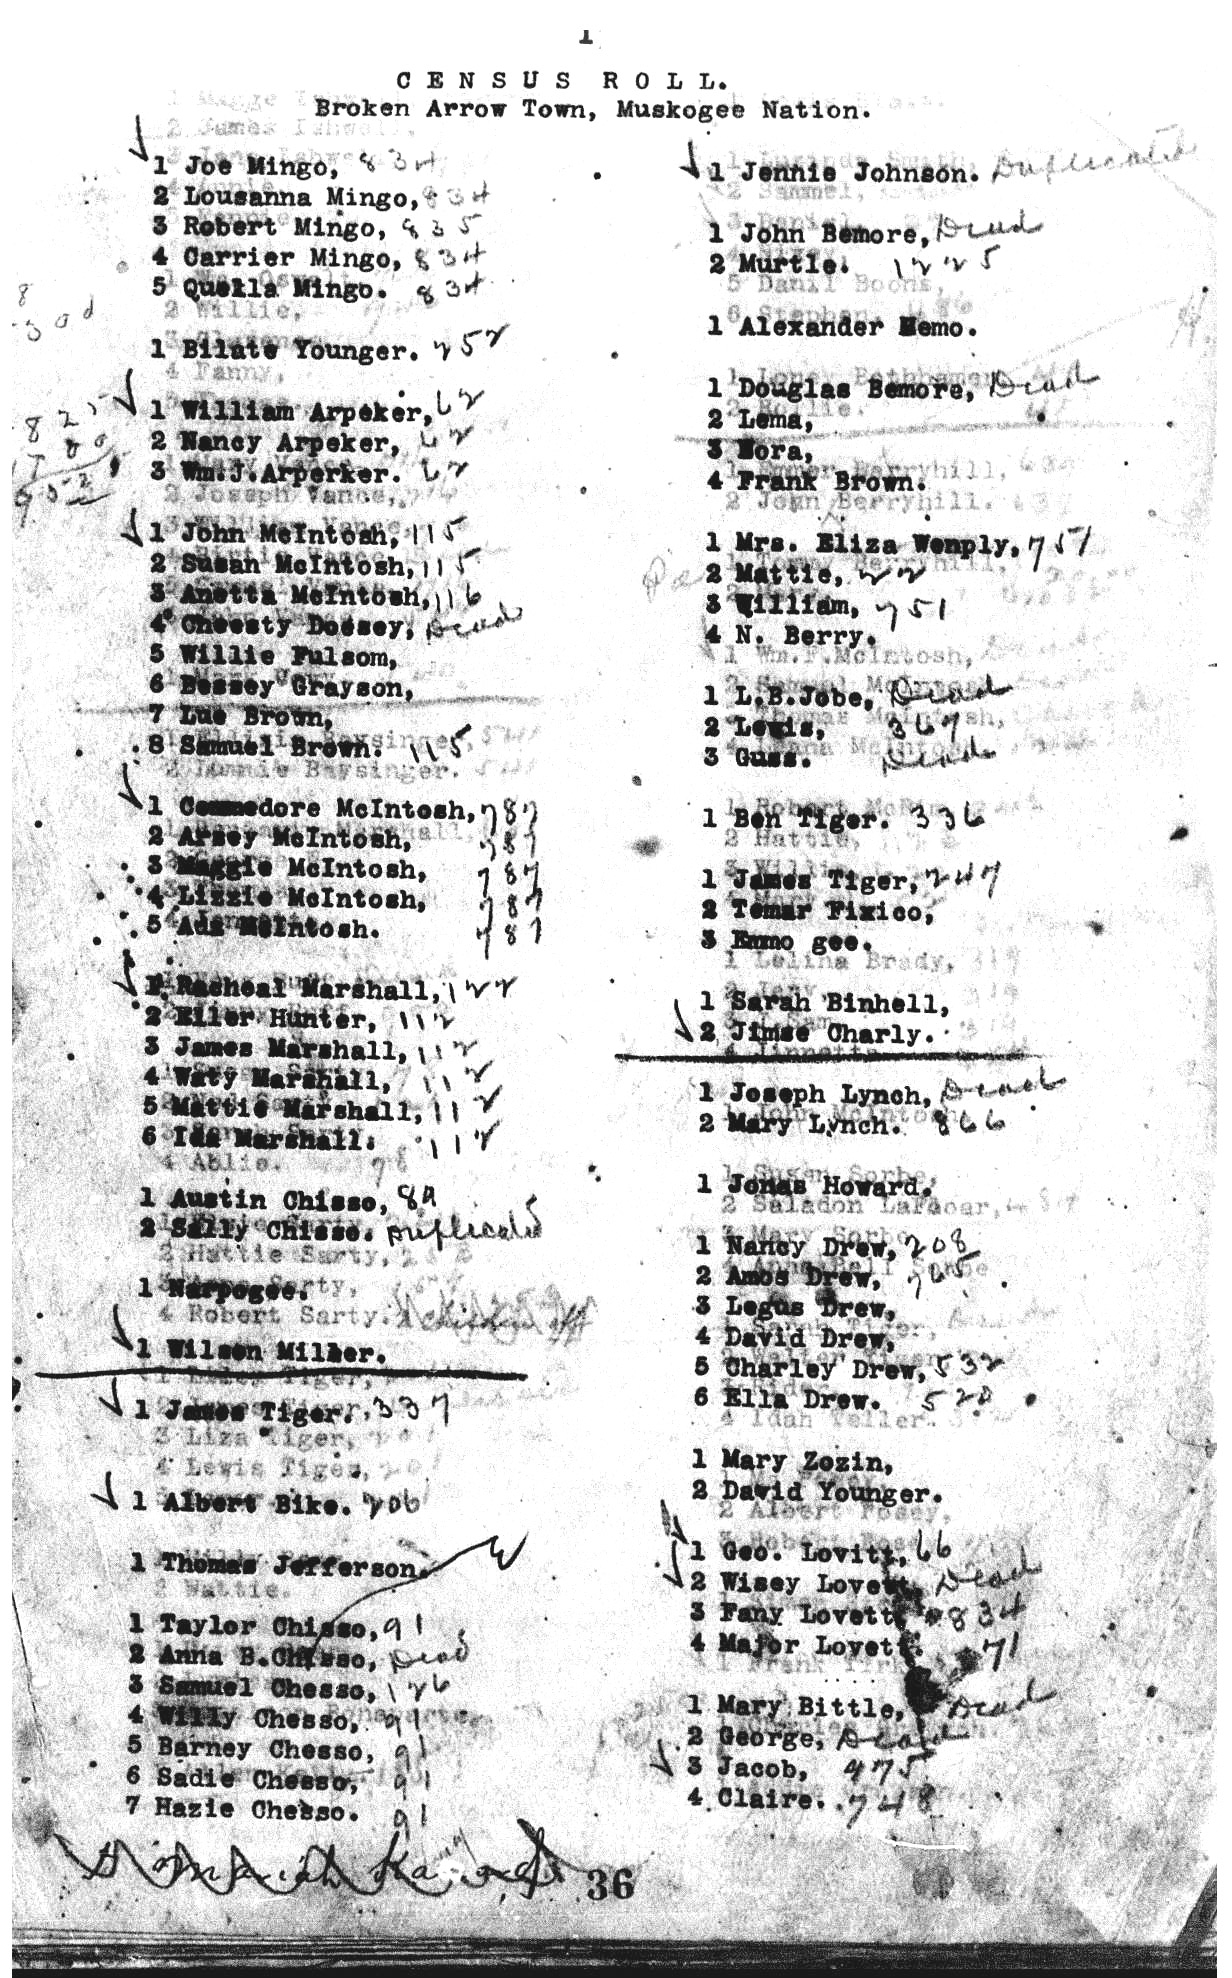 1
CENSUS ROLL.
Broken Arrow Town, Muskogee Nation.
1 Joe Mingo, 834
2 Lousanna Mingo, 834
3 Robert Mingo, 835
4 Carrier Mingo, 834
5 Quella Mingo. 834
1 Bilate Younger. 252
1 William Arpeker, 62
2 Nancy Arpeker, 62
3 Wm.J.Arperker. 62
1 John McIntosh, 115
2 Susan McIntosh, 115
3 Anetta McIntosh, 116
4 Cheesty Dossey, Dead
5 Willie Fulsom,
6 Bessey Grayson,
7 Lue Brown,
8 Samuel Brown. 115
1 Commedore McIntosh, 787
2 Arsey McIntosh, 787
3 Maggie McIntosh, 787
4 Lizzie McIntosh, 787
5 Ada McIntosh. 787
1 Racheal Marshall, 122
2 Eller Hunter, 112
3 James Marshall, 112
4 Waty Marshall, 112
5 Mattie Marshall, 112
6 Ida Marshall. 112
1 Austin Chisso,
2 Sally Chisso. Duplicated
1 Narpogee.
1 Wilson Miller.
1 James Tiger. 337
1 Albert Bike. 206
1 Thomas Jefferson.
1 Taylor Chisso, 91
2 Anna B.Chisso, Dead
3 Samuel Chesso, 126
4 Willy Chesso, 91
5 Barney Chesso, 91
6 Sadie Chesso, 91
7 Hazie Chesso. 91
1 Jennie Johnson. Duplicated
1 John Bemore, Dead
2 Murtle. 1225
1 Alexander Hemo.
1 Douglas Bemore, Dead
2 Lema,
3 Nora,
4 Frank Brown.
1 Mrs. Eliza Wenply, 751
2 Mattie, 22
3 William, 751
4 N. Berry.
1 L.B.Jobe, Dead
2 Lewis, 367
3 Guss. Dead
1 Ben Tiger. 336
1 James Tiger, 247
2 Temar Fixico,
3 Emmo gee.
1 Sarah Binhell,
2 Jimse Charly.
1 Joseph Lynch, Dead
2 Mary Lynch. 866
1 Jonas Howard.
1 Nancy Drew, 208
2 Amos Drew, 765
3 Legus Drew,
4 David Drew,
5 Charley Drew, 532
6 Ella Drew. 520
1 Mary Zozin,
2 David Younger.
1 Geo. Lovitt, 66
2 Wisey Lovett, Dead
3 Fany Lovett, 834
4 Major Lovett. 71
1 Mary Bittle, Dead
2 George, Dead
3 Jacob, 475
4 Claire. 748
36